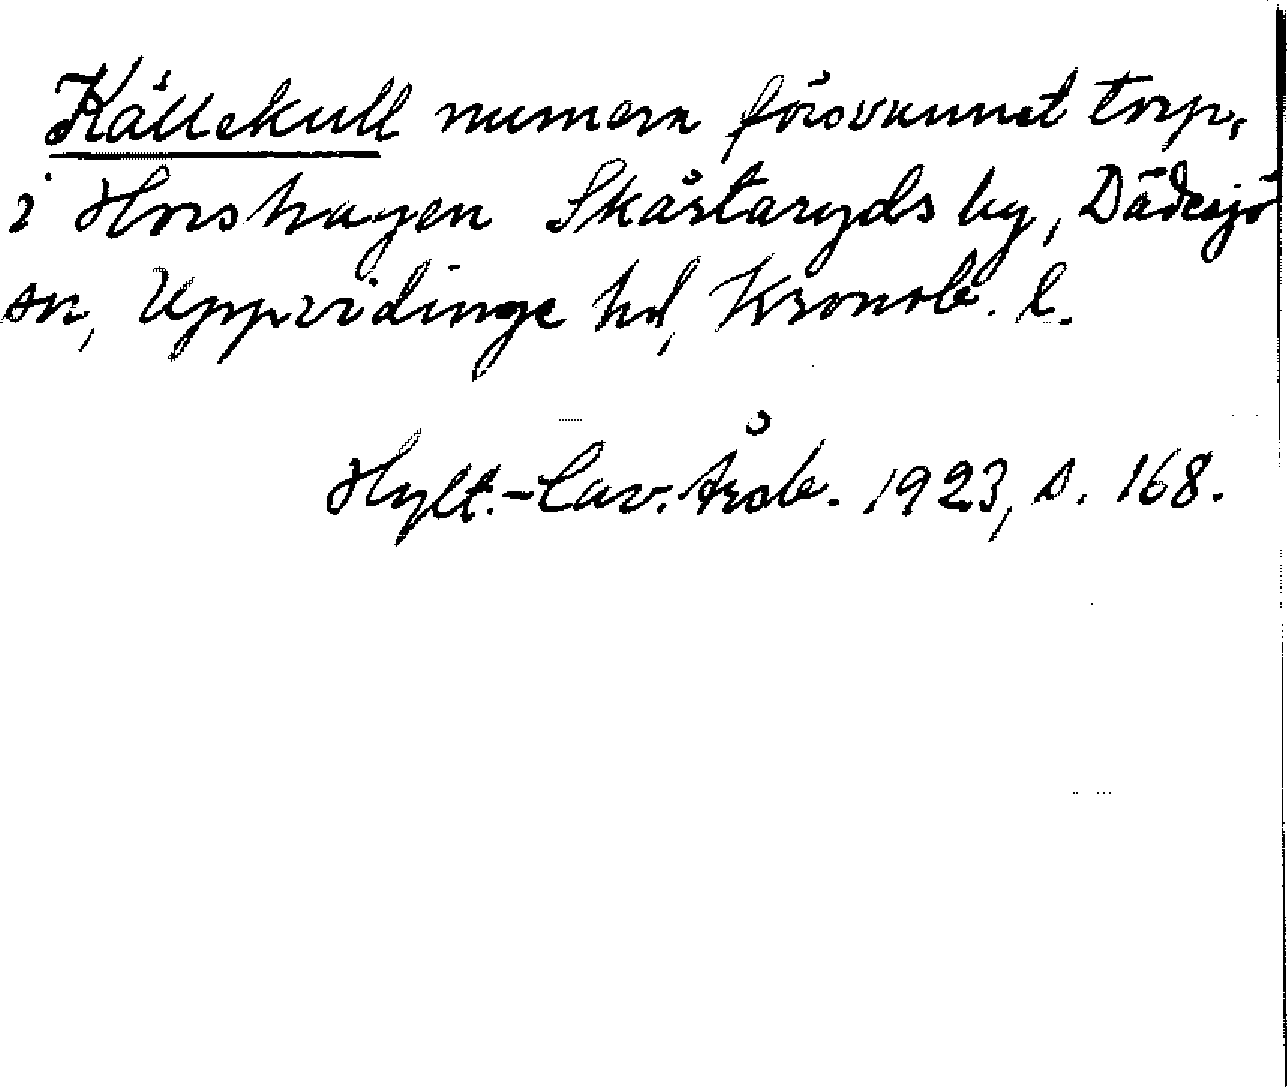 Källekull numera försvunnet torp,
i Horshagen Skårtaryds by, Dädesjö
sn, Uppvidinge hd, Kronob. l.
Hylt.-Cav. Årsb. 1923, s. 168.